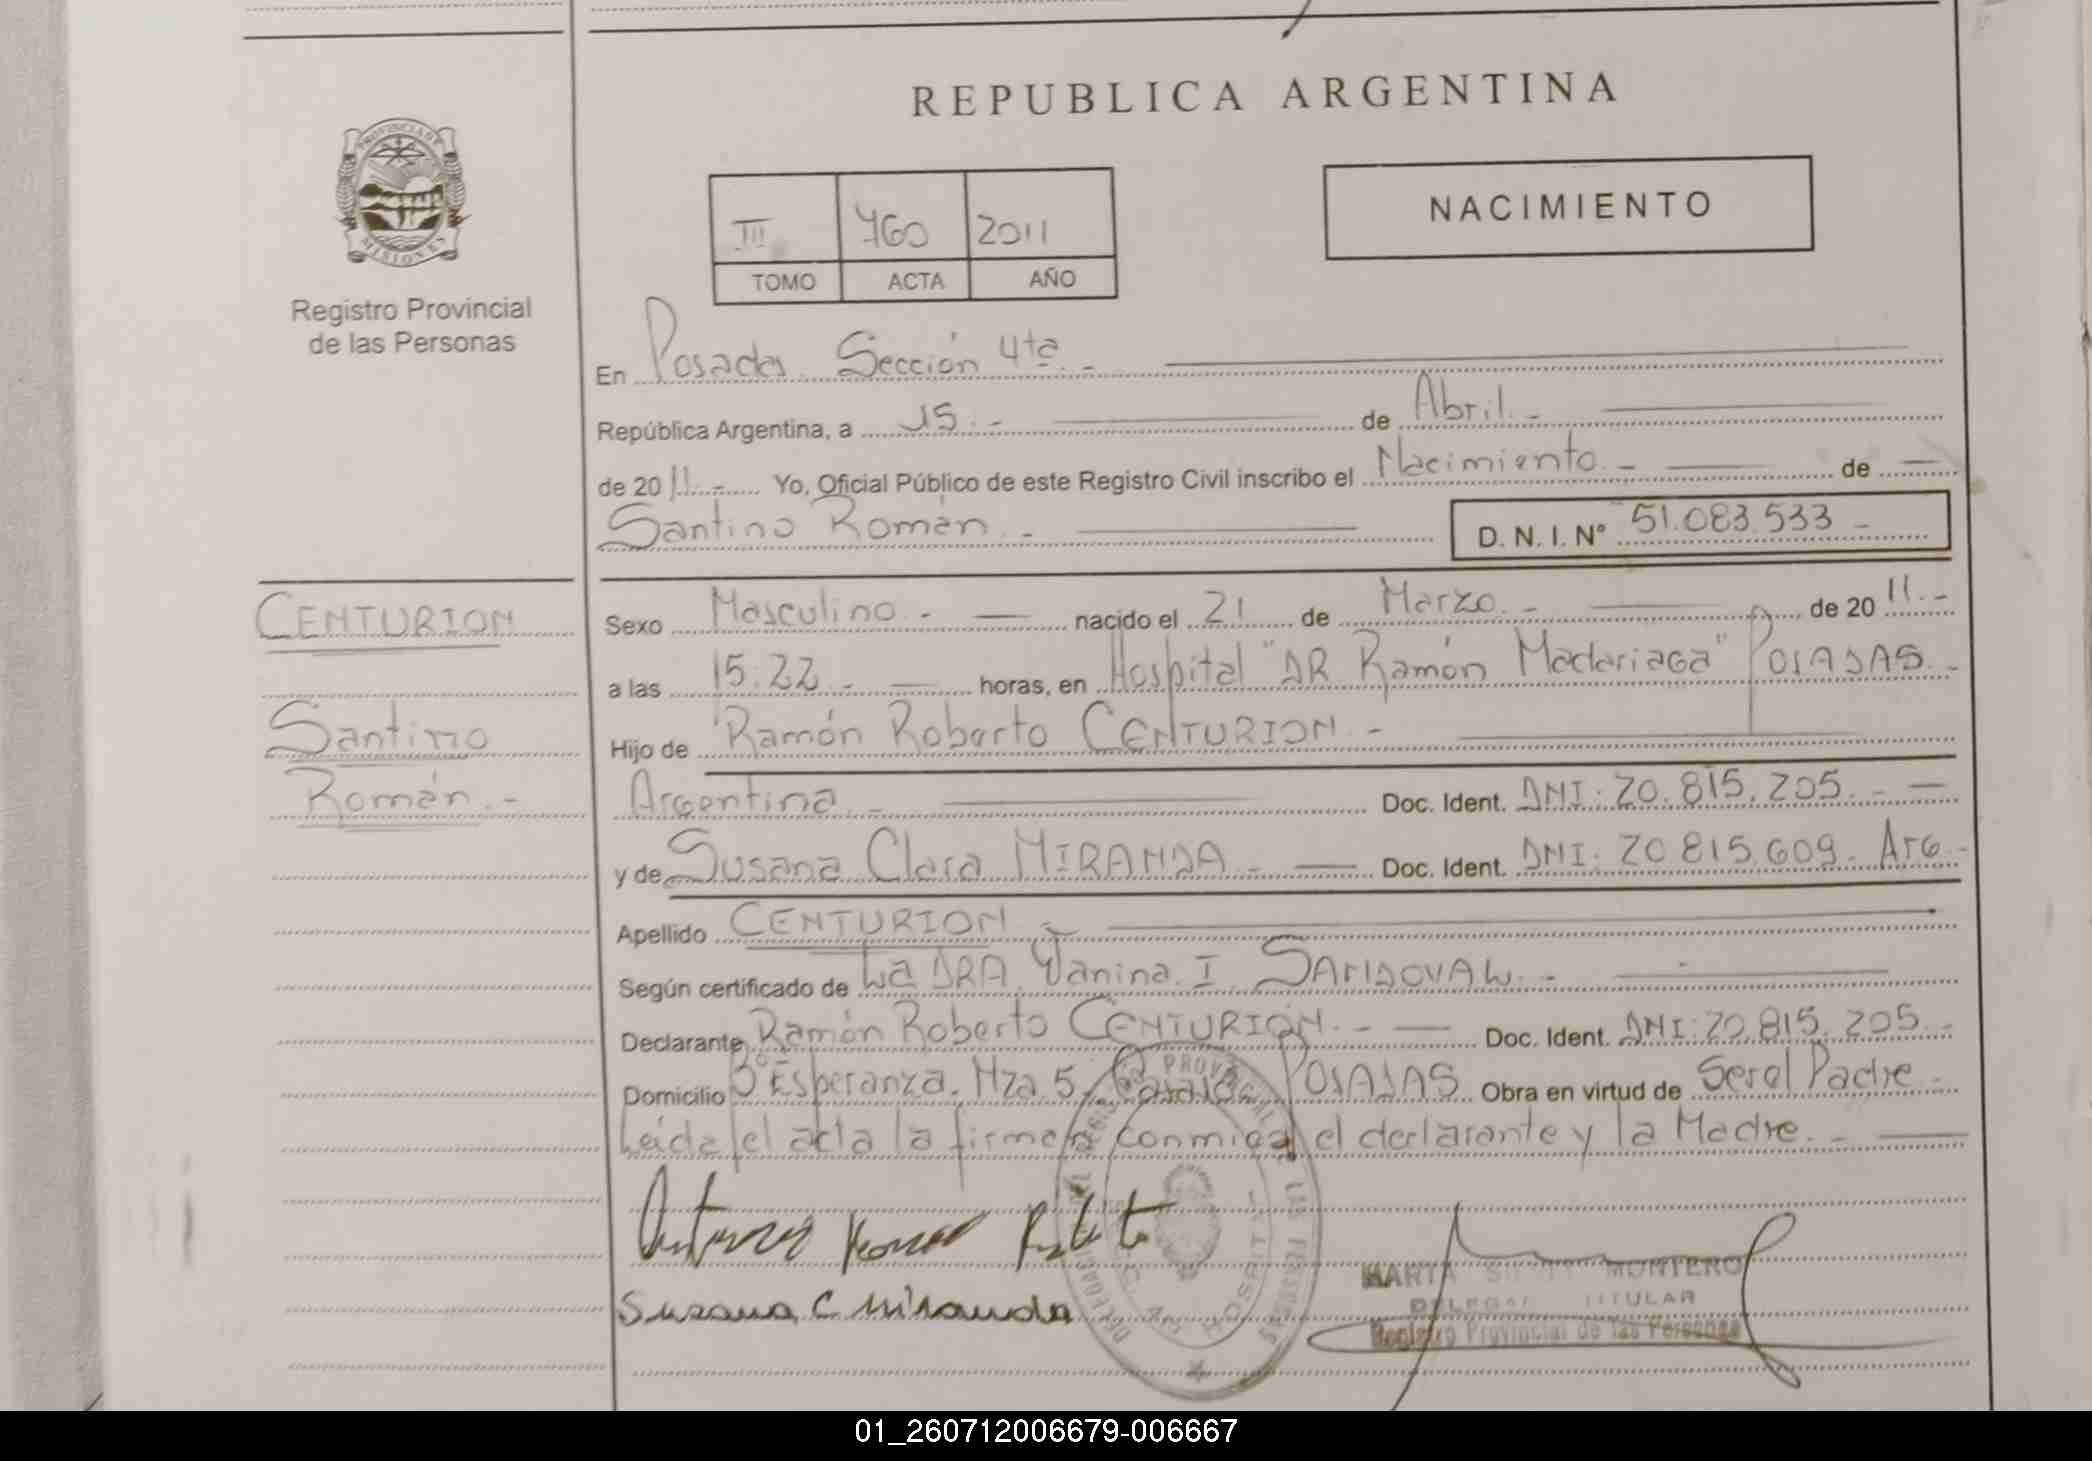 REPUBLICA ARGENTINA
PROVINCIA DE
MISIONES
Registro Provincial
de las Personas
III 760 2011
TOMO ACTA AÑO
NACIMIENTO
En Posadas Sección 4ta. -
República Argentina, a 15. - de Abril. -
de 2011. - Yo, Oficial Público de este Registro Civil inscribo el Nacimiento. - de
Santino Román. -
D. N. I. Nº 51.083.533 -
CENTURION
Santino
Román. -
Sexo Masculino. - nacido el 21 de Marzo. - de 2011. -
a las 15:22. - horas, en Hospital "DR Ramón Madariaga" POSADAS. -
Hijo de Ramón Roberto CENTURION. -
Argentina. - Doc. Ident. DNI: 20.815.205. -
y de Susana Clara MIRANDA. - Doc. Ident. DNI: 20 815.609 - Arg -
Apellido CENTURION -
Según certificado de La DRA. Vanina I. SANDOVAL. -
Declarante Ramón Roberto CENTURION. - Doc. Ident. DNI: 20.815.205. -
Domicilio Bº Esperanza. Mza 5, POSADAS Obra en virtud de Ser el Padre -
Leida el acta la firman conmigo el declarante y la Madre. -
Roberto
Susana C Miranda
MARTA MONTERO
TITULAR
Registro Provincial de las Personas
01_260712006679-006667